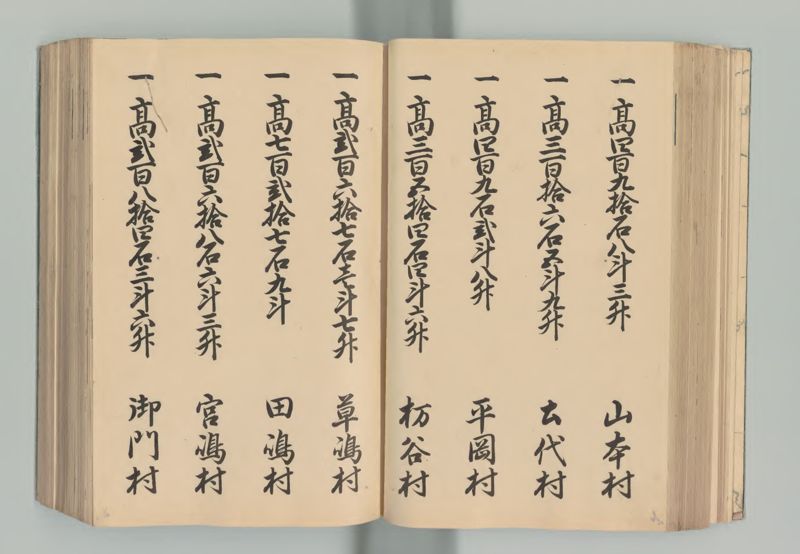 一 髙四百九拾石八斗三升 山本村
一 髙三百拾六石五斗九升 土代村
一 髙四百九石弐斗八升 平岡村
一 髙三百五拾四石四斗六升 杤谷村
一 髙弐百六拾七石壱斗七升 草嶋村
一 髙七百弐拾七石九斗 田嶋村
一 髙弐百六拾八石六斗三升 宮嶋村
一 髙弐百八拾四石三斗六升 御門村